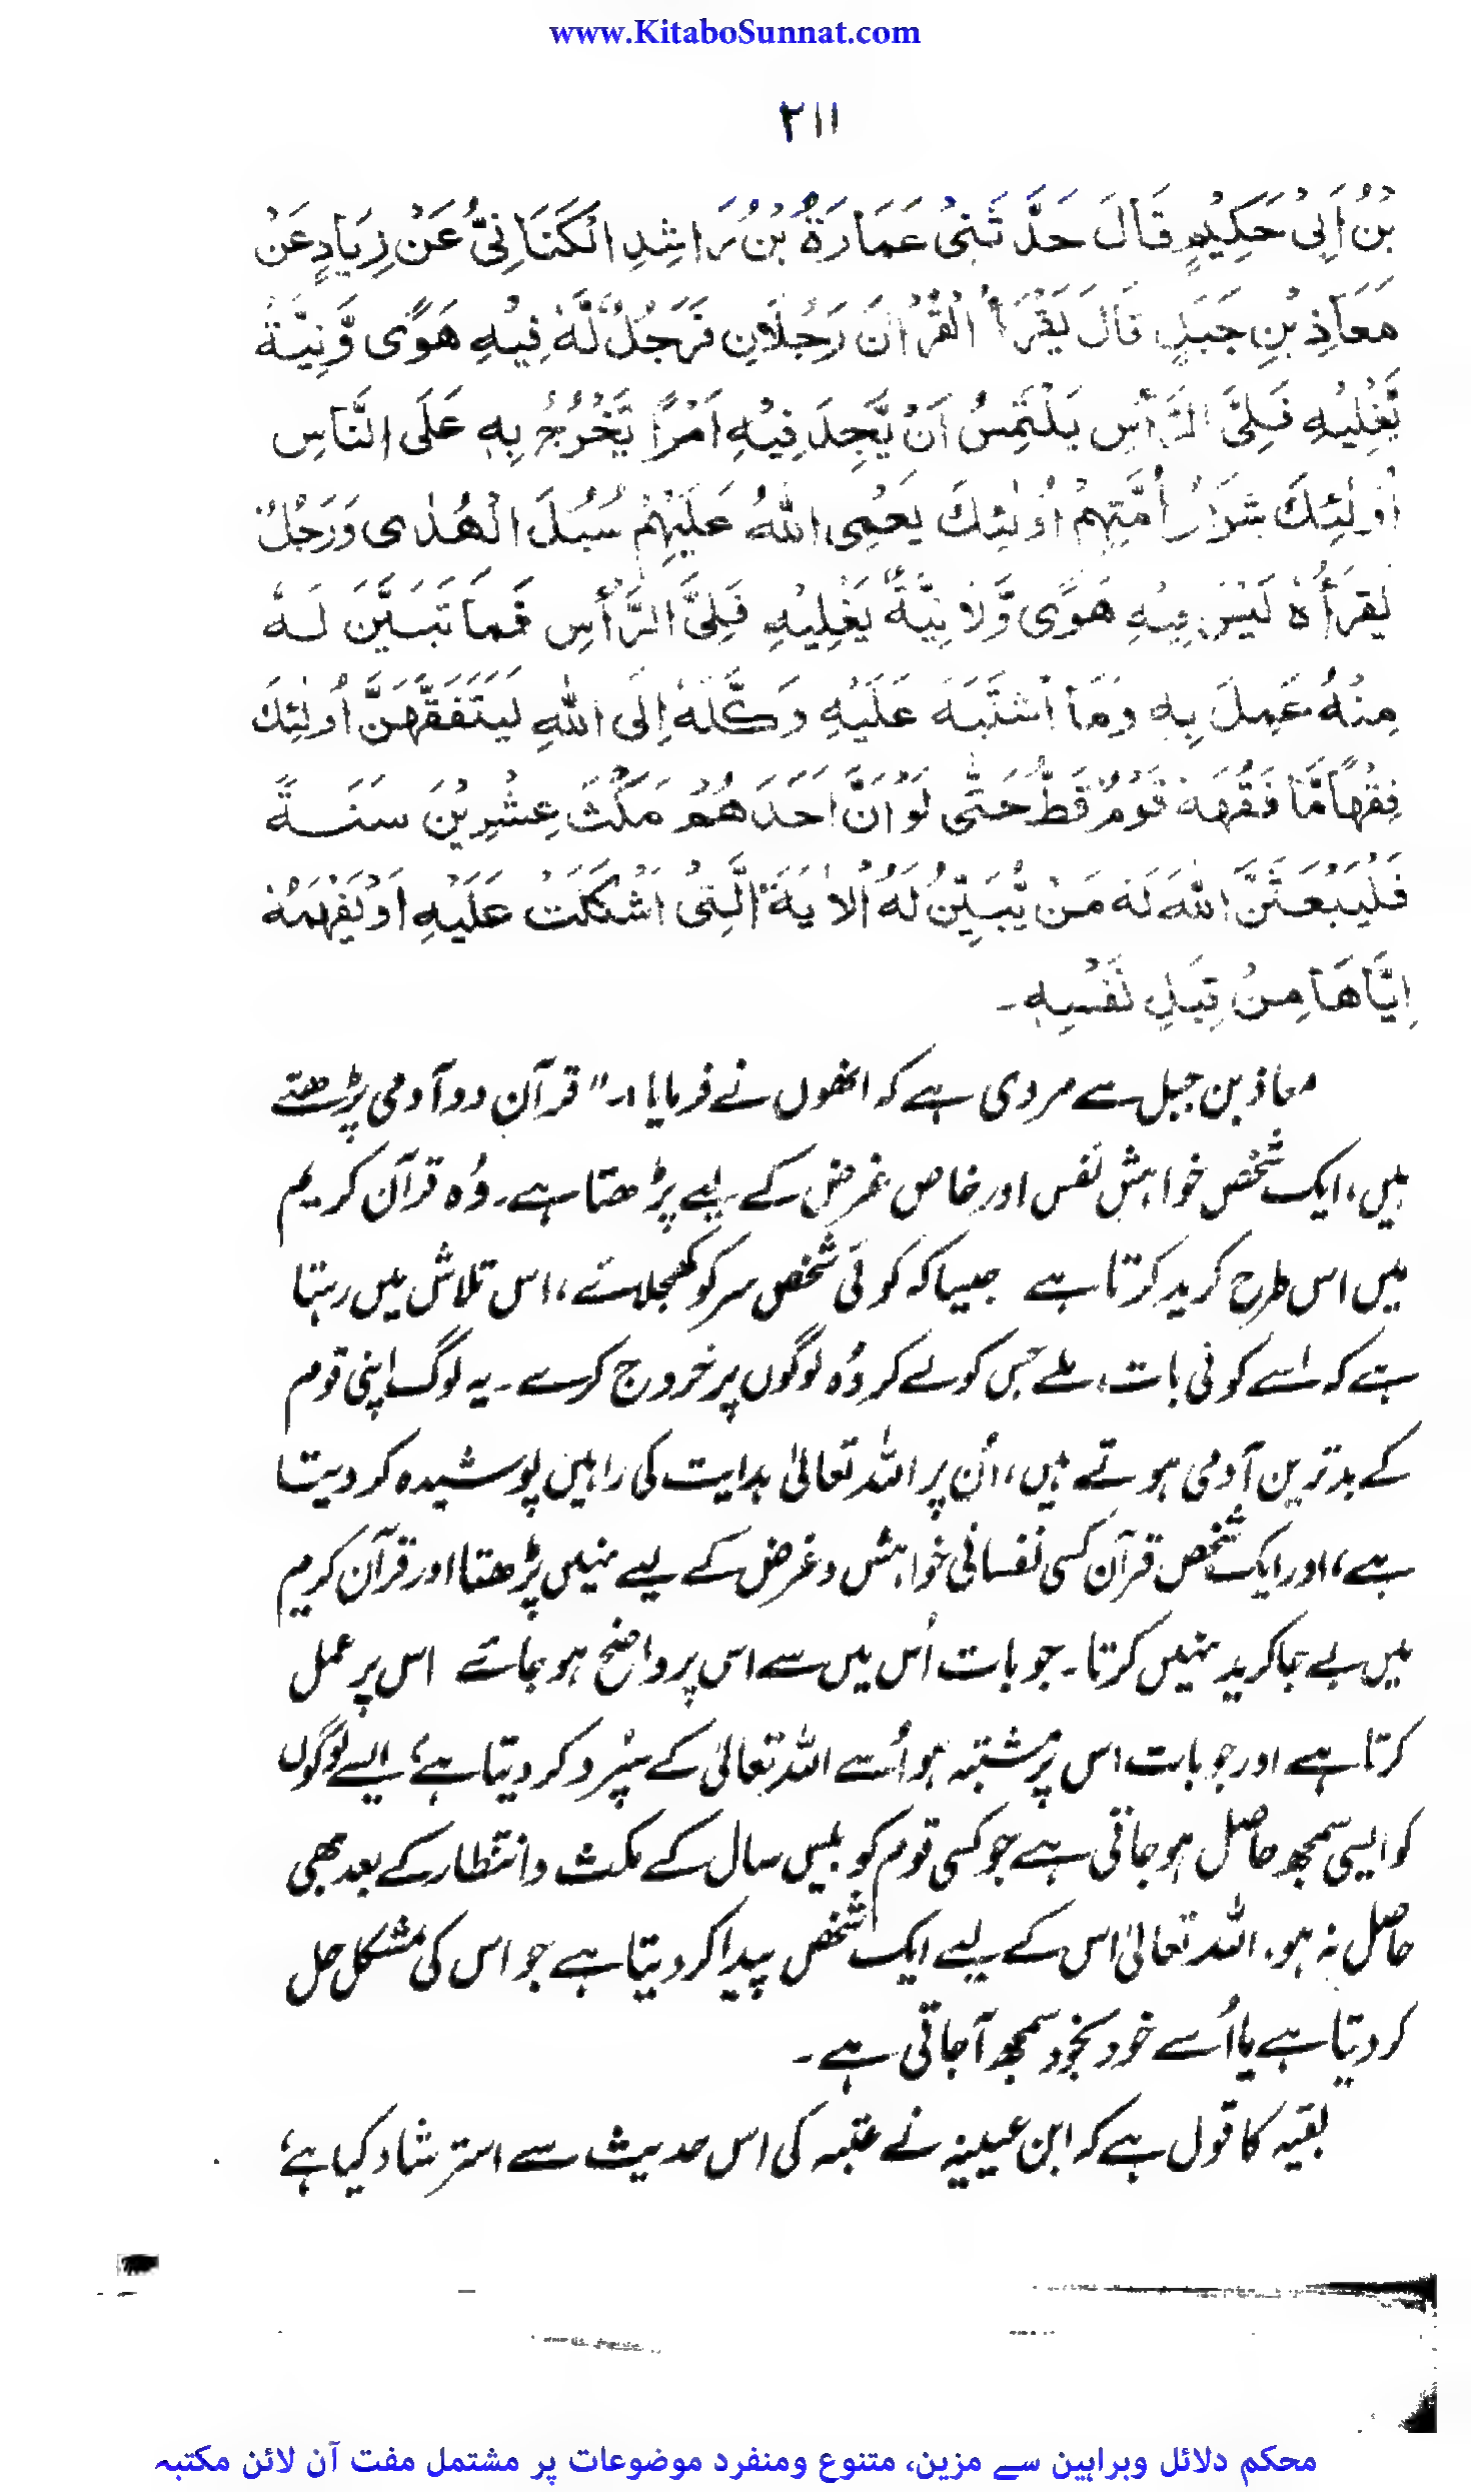 www.KitaboSunnat.com
۲۱۱
بْنُ أَبِیْ حَكِيْمٍ قَالَ حَدَّ ثَنِیْ عَمَارَةُ بْنُ رَاشِدِ الْكَنَانِیُّ عَنْ زِيَادٍ عَنْ
مَعَاذِ بْنِ جَبَلٍ قَالَ يَقْرَأُ الْقُرْاٰنَ رَجُلَانِ فَرَجُلٌ لَّهٗ فِيْهِ هَوًى وَّنِيَّةٌ
يَّفْلِيْهِ فَلِیَّ الرَّأْسِ يَلْتَمِسُ اَنْ يَّجِدَ فِيْهِ اَمْرًا يَّخْرُجُ بِهٖ عَلَى النَّاسِ
اُولٰئِكَ شَرَارُ اُمَّتِهِمْ اُولٰئِكَ يَعْمِی اللهُ عَلَيْهِمْ سُبُلَ الْهُدٰى وَرَجُلٌ
يَقْرَأُهٗ لَيْسَ فِيْهِ هَوًى وَّلَا نِيَّةٌ يَفْلِيْهِ فَلِیَّ الرَّأْسِ فَمَا تَبَيَّنَ لَهٗ
مِنْهُ عَمِلَ بِهٖ وَمَا اشْتَبَهَ عَلَيْهِ وَكَّلَهٗ اِلَى اللهِ لَيَتَفَقَّهَنَّ اُولٰئِكَ
فِقْهًا مَّا فَقُهَهٗ قَوْمٌ قَطُّ حَتّٰى لَوْ اَنَّ اَحَدَهُمْ مَكَثَ عِشْرِيْنَ سَنَةً
فَلْيَبْعَثَنَّ اللهُ لَهٗ مَنْ يُّبَيِّنُ لَهُ الْاٰيَةَ الَّتِیْ اَشْكَلَتْ عَلَيْهِ اَوْ يُفْهِمُهٗ
اِيَّاهَا مِنْ قِبَلِ نَفْسِهٖ۔
معاذ بن جبل سے مروی ہے کہ انھوں نے فرمایا :۔ "قرآن دو آدمی پڑھتے
ہیں، ایک شخص خواہش نفس اور خاص غرض کے لیے پڑھتا ہے۔ وُہ قرآن کریم
میں اس طرح کرید کرتا ہے جیسا کہ کوئی شخص سر کو کھجلائے، اس تلاش میں رہتا
ہے کہ اسے کوئی بات ملے جس کو لے کر وُہ لوگوں پر خروج کرے۔ یہ لوگ اپنی قوم
کے بدترین آدمی ہوتے ہیں، اُن پر اللہ تعالیٰ ہدایت کی راہیں پوشیدہ کر دیتا
ہے، اور ایک شخص قرآن کسی نفسانی خواہش و غرض کے لیے نہیں پڑھتا اور قرآن کریم
میں بے جا کرید نہیں کرتا۔ جو بات اُس میں سے اس پر واضح ہو جائے اس پر عمل
کرتا ہے اور جو بات اس پر مشتبہ ہو اُسے اللہ تعالیٰ کے سپُرد کر دیتا ہے، ایسے لوگوں
کو ایسی سمجھ حاصل ہو جاتی ہے جو کسی قوم کو بیس سال کے مکث و انتظار کے بعد بھی
حاصل نہ ہو، اللہ تعالیٰ اس کے لیے ایک شخص پیدا کر دیتا ہے جو اس کی مشکل حل
کر دیتا ہے یا اُسے خود بخود سمجھ آ جاتی ہے۔
بقیہ کا قول ہے کہ ابن عیینہ نے عتبہ کی اس حدیث سے استرشاد کیا ہے،
محکم دلائل وبراہین سے مزین، متنوع ومنفرد موضوعات پر مشتمل مفت آن لائن مکتبہ